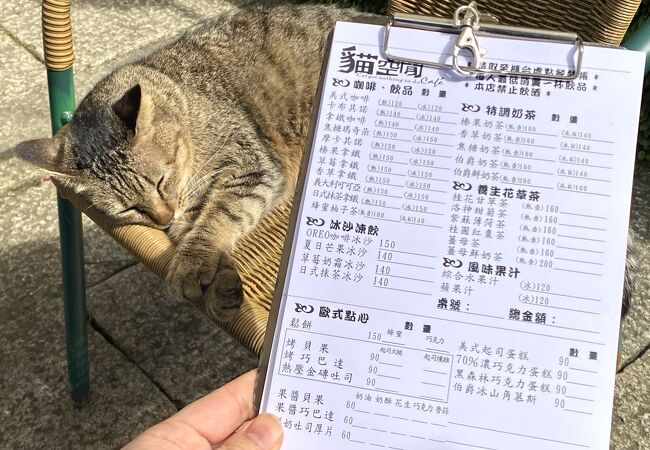 貓空間
Cat got nothing to do Café
＊請取至櫃台處點餐與帳＊
＊每人最低消費一杯飲品＊
＊本店禁止飲酒＊
咖啡、飲品 數量
美式咖啡 (熱)120 (冰)120
卡布其諾 (熱)150 (冰)140
拿鐵咖啡 (熱)150 (冰)140
焦糖瑪奇朵 (熱)150 (冰)140
摩卡其諾 (熱)150 (冰)140
榛果拿鐵 (熱)150 (冰)140
草莓拿鐵 (熱)150 (冰)140
香草拿鐵 (熱)150 (冰)140
義大利可可亞 (熱)150 (冰)140
日式抹茶拿鐵 (熱)150 (冰)140
蜂蜜柚子茶 (熱壺)160 (冰杯)140
冰沙凍飲
OREO咖啡冰沙 150
夏日芒果冰沙 140
草莓奶霜冰沙 140
日式抹茶冰沙 140
特調奶茶 數量
榛果奶茶 (熱壺)160 (冰杯)140
香草奶茶 (熱壺)160 (冰杯)140
焦糖奶茶 (熱壺)160 (冰杯)140
伯爵奶茶 (熱壺)160 (冰杯)140
伯爵鮮奶茶 (熱壺)200 (冰杯)160
養生花草茶
桂花甘草茶 (熱壺)160
洛神甜菊茶 (熱壺)160
紫蘇薄荷茶 (熱壺)160
桂圓紅棗茶 (熱壺)160
薑母茶 (熱壺)160
薑母鮮奶茶 (熱壺)200
風味果汁
綜合水果汁 (冰)120
蘋果汁 (冰)120
桌號： 總金額：
歐式點心 數量
鬆餅 150 蜂蜜 巧克力
烤貝果 90
烤巧巴達 90
熱壓金磚吐司 90
奶油 奶酥 花生 巧克力 香蒜
果醬貝果 60
果醬巧巴達 60
奶吐司厚片 60
數量
美式起司蛋糕 90
70%濃巧克力蛋糕 90
黑森林巧克力蛋糕 90
伯爵冰山角慕斯 90